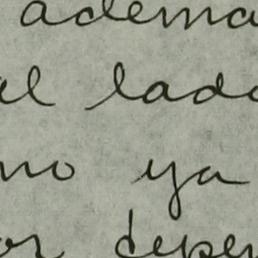 adema
al lado
no ya
or depen